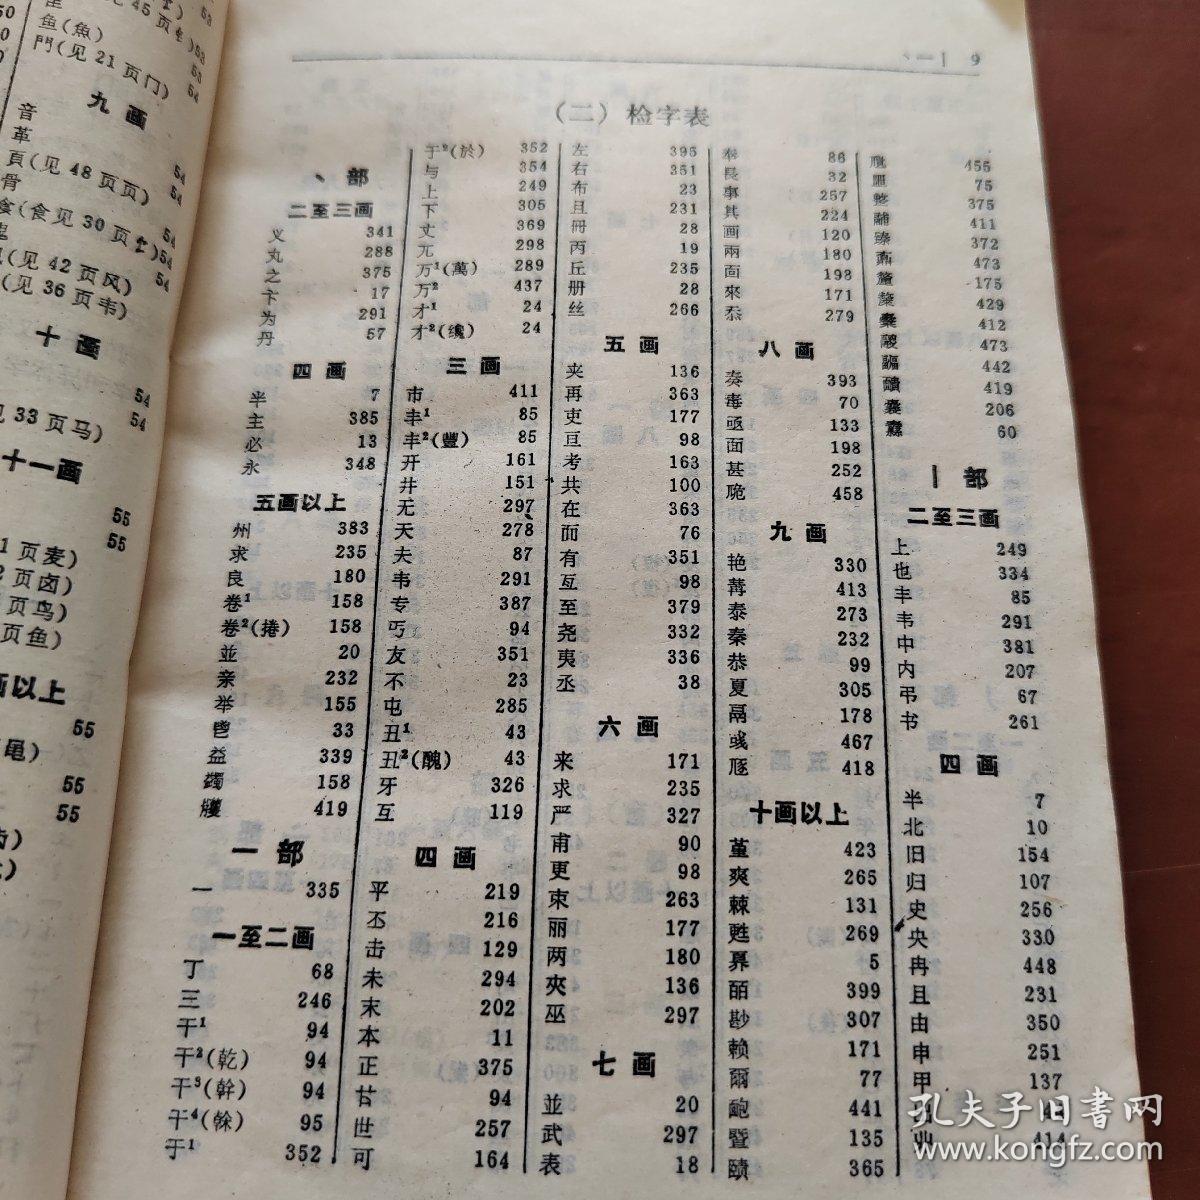 50
鱼(魚)
門(见21页门)
53
54
九画
音
革
頁(见48页页)
骨
54
54
54
十画
见33页马)
54
54
十一画
55
55
1页麦)
2页卤)
页鸟)
页鱼)
画以上
55
55
55
9
(二)检字表
丶部
二至三画
义 341
丸 288
之 375
卞 17
为 291
丹 57
四画
半 7
主 385
必 13
永 348
五画以上
州 383
求 235
良 180
卷¹ 158
卷²(捲) 158
並 20
亲 232
举 155
鬯 33
益 339
蠲 158
一部
一 335
一至二画
丁 68
三 246
干¹ 94
干²(乾) 94
干³(幹) 94
干⁴(榦) 95
于¹ 352
于²(於) 352
与 354
上 249
下 305
丈 369
兀 298
万¹(萬) 289
万² 437
才¹ 24
才²(纔) 24
三画
市 411
丰¹ 85
丰²(豐) 85
开 161
井 151
无 297
天 278
夫 87
韦 291
专 387
丐 94
友 351
不 23
屯 285
丑¹ 43
丑²(醜) 43
牙 326
互 119
四画
平 219
丕 216
击 129
未 294
末 202
本 11
正 375
甘 94
世 257
可 164
左 395
右 351
布 23
且 231
冊 28
丙 19
丘 235
册 28
丝 266
五画
夹 136
再 363
吏 177
亘 98
考 163
共 100
在 363
而 76
有 351
亙 98
至 379
尧 332
夷 336
丞 38
六画
来 171
求 235
严 327
甫 90
更 98
束 263
丽 177
两 180
夾 136
巫 297
七画
並 20
武 297
表 18
奉 86
長 32
事 257
其 224
画 120
兩 180
面 198
來 171
忝 279
八画
奏 393
毒 70
亟 133
面 198
甚 252
九画
艳 330
冓 413
泰 273
秦 232
恭 99
夏 305
鬲 178
彧 467
十画以上
堇 423
爽 265
棘 131
甦 269
皕 399
尠 307
赖 171
爾 77
暨 135
賾 365
455
75
整 375
黼 411
臻 372
473
釐 175
429
橐 412
473
442
419
囊 206
60
丨部
二至三画
上 249
也 334
丰 85
韦 291
中 381
内 207
弔 67
书 261
四画
半 7
北 10
旧 154
归 107
史 256
央 330
冉 448
且 231
由 350
申 251
甲 137
业 414
孔夫子旧书网
www.kongfz.com